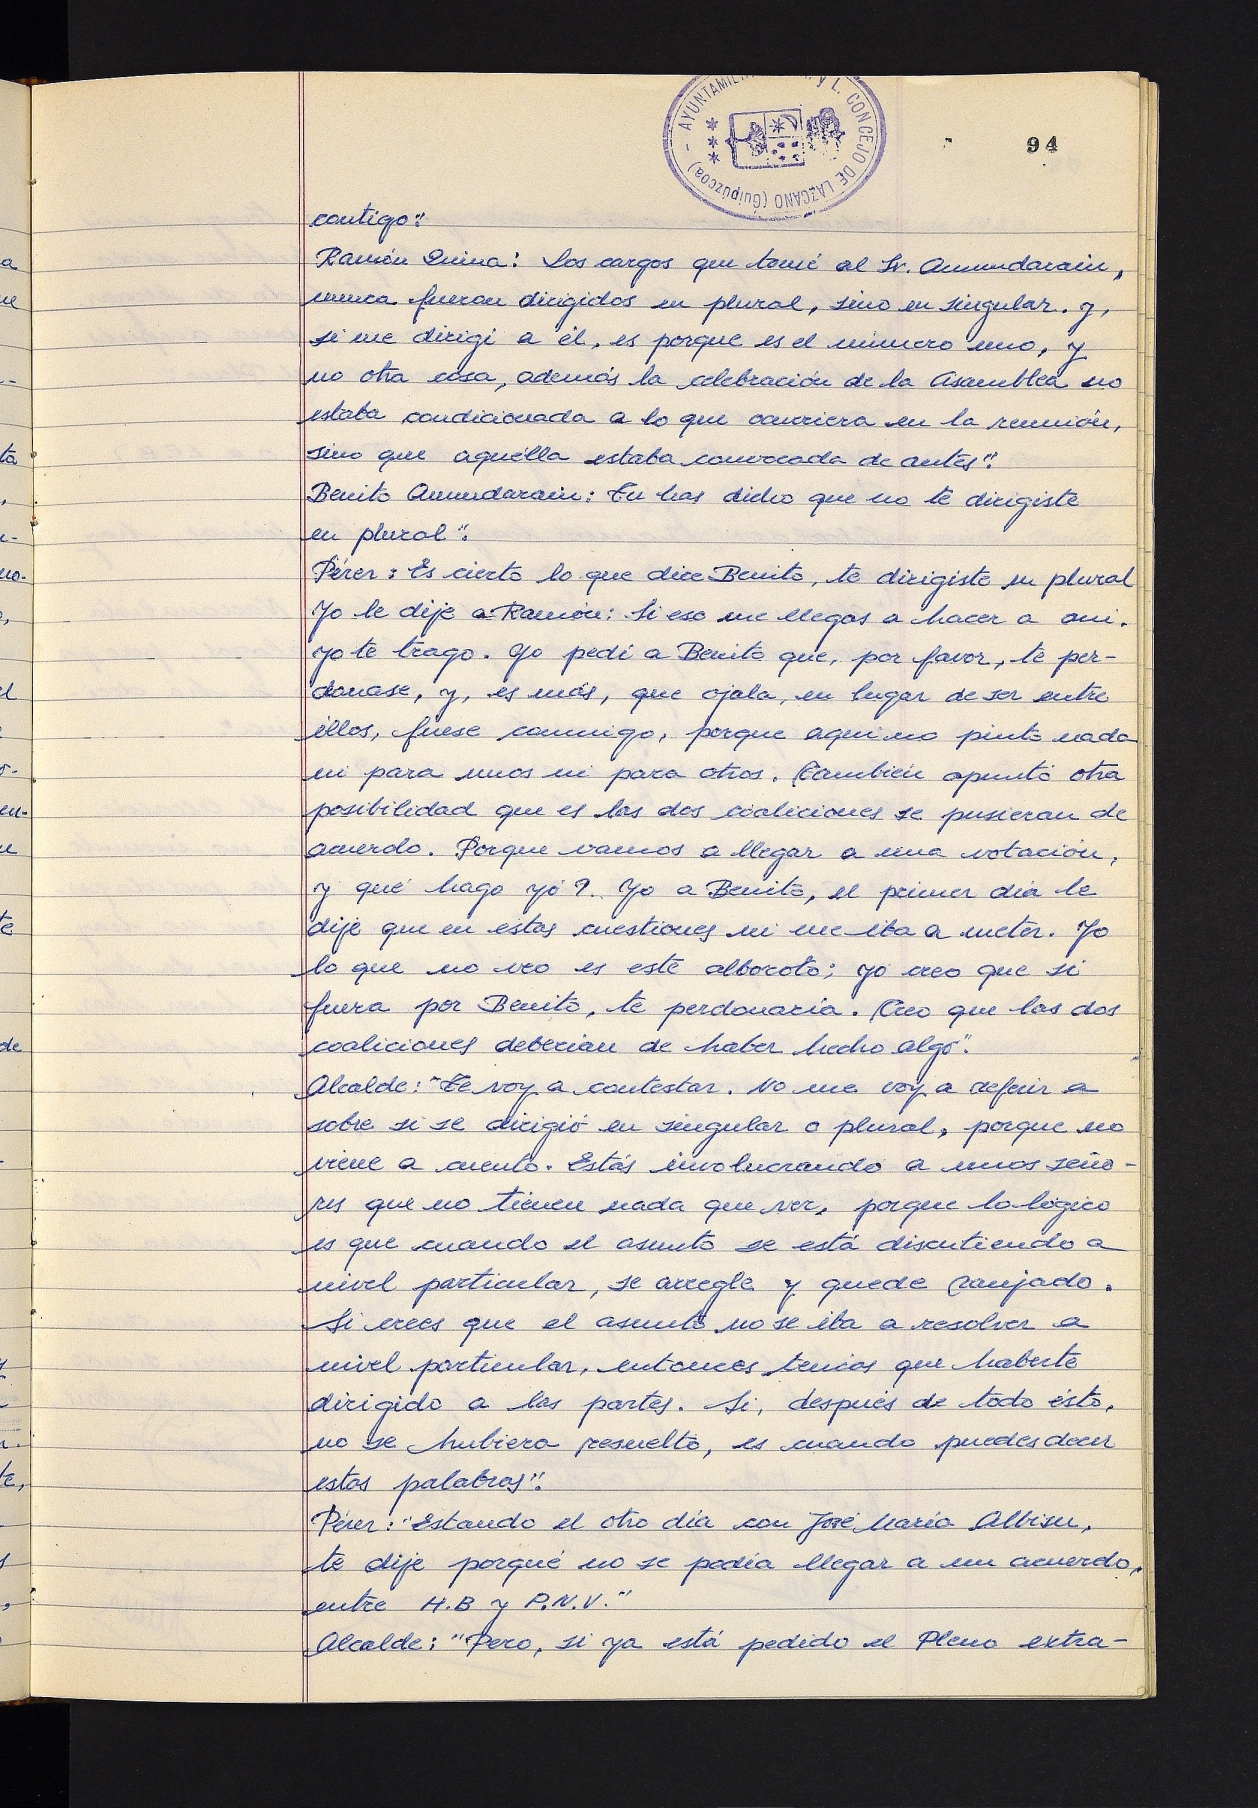 94
contigo".
Ramón Imina: Los cargos que tomé al Sr. Amundarain,
nunca fueron dirigidos en plural, sino en singular. y,
si me dirigi a él, es porque es el número uno, y
no otra cosa, además la celebración de la Asamblea no
estaba condicionada a lo que ocurriera en la reunión,
sino que aquélla estaba convocada de antes".
Benito Amundarain: Tu has dicho que no te dirigiste
en plural".
Pérez: Es cierto lo que dice Benito, te dirigiste en plural
Yo le dije a Ramón: Si eso me llegas a hacer a mi.
yo te trago. Yo pedi a Benito que, por favor, te per-
donase, y, es más, que ojala, en lugar de ser entre
éllos, fuese conmigo, porque aqui no pinto nada
ni para unos ni para otros. También apuntó otra
posibilidad que es las dos coaliciones se pusieran de
acuerdo. Porque vamos a llegar a una votación,
y qué hago yo?. Yo a Benito, el primer dia le
dije que en estas cuestiones ni me iba a meter. Yo
lo que no veo es este alboroto; yo creo que si
fuera por Benito, te perdonaria. Creo que las dos
coaliciones deberian de haber hecho algo".
Alcalde: "Te voy a contestar. No me voy a referir a
sobre si se dirigió en singular o plural, porque no
viene a cuento. Estás involucrando a unos seño-
res que no tienen nada que ver, porque lo lógico
es que cuando el asunto se está discutiendo a
nivel particular, se arregle y quede zanjado.
Si crees que el asunto no se iba a resolver a
nivel particular, entonces tenias que haberte
dirigido a las partes. Si, después de todo ésto,
no se hubiera resuelto, es cuando puedes decir
estas palabras".
Pérez: "Estando el otro dia con José Maria Albisu,
te dije porqué no se podia llegar a un acuerdo,
entre H.B y P.N.V."
Alcalde: "Pero, si ya está pedido el Pleno extra-